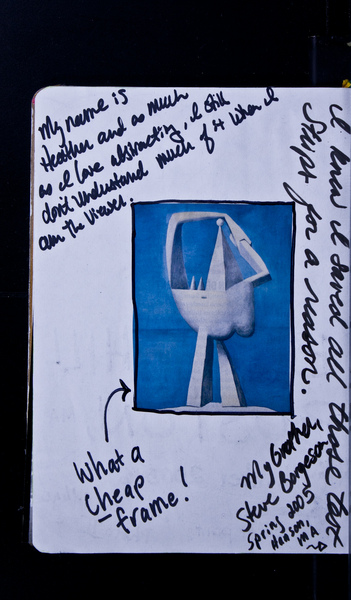 My name is
Heather and as much
as I love abstracting, I still
don't understand much of it when I
am the viewer.
I knew I saved all those text
strips for a reason.
What a
cheap
frame!
My brother,
Steve Borgeson
Spring 2005
Hanson,
MA